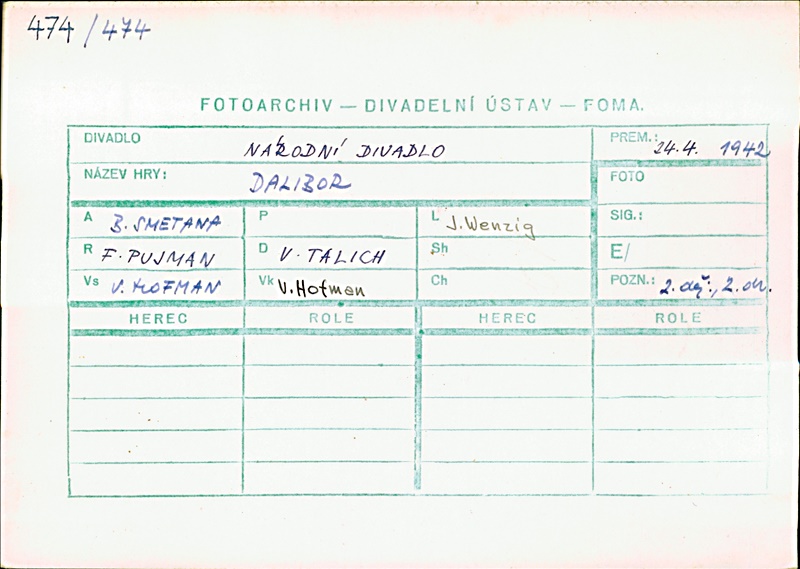 474 / 474
FOTOARCHIV — DIVADELNÍ ÚSTAV — FOMA.
DIVADLO NÁRODNÍ DIVADLO PREM.: 24.4. 1942
NÁZEV HRY: DALIBOR FOTO
A B. SMETANA P L J. Wenzig SIG.:
R F. PUJMAN D V. TALICH Sh E/
Vs V. HOFMAN Vk V. Hofman Ch POZN.: 2. děj., 2. ob.
HEREC ROLE HEREC ROLE